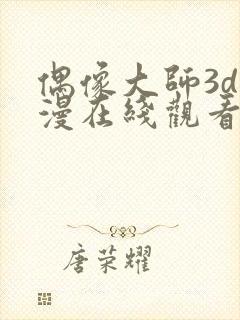 偶像大師3d
漫在綫觀看
唐荣耀